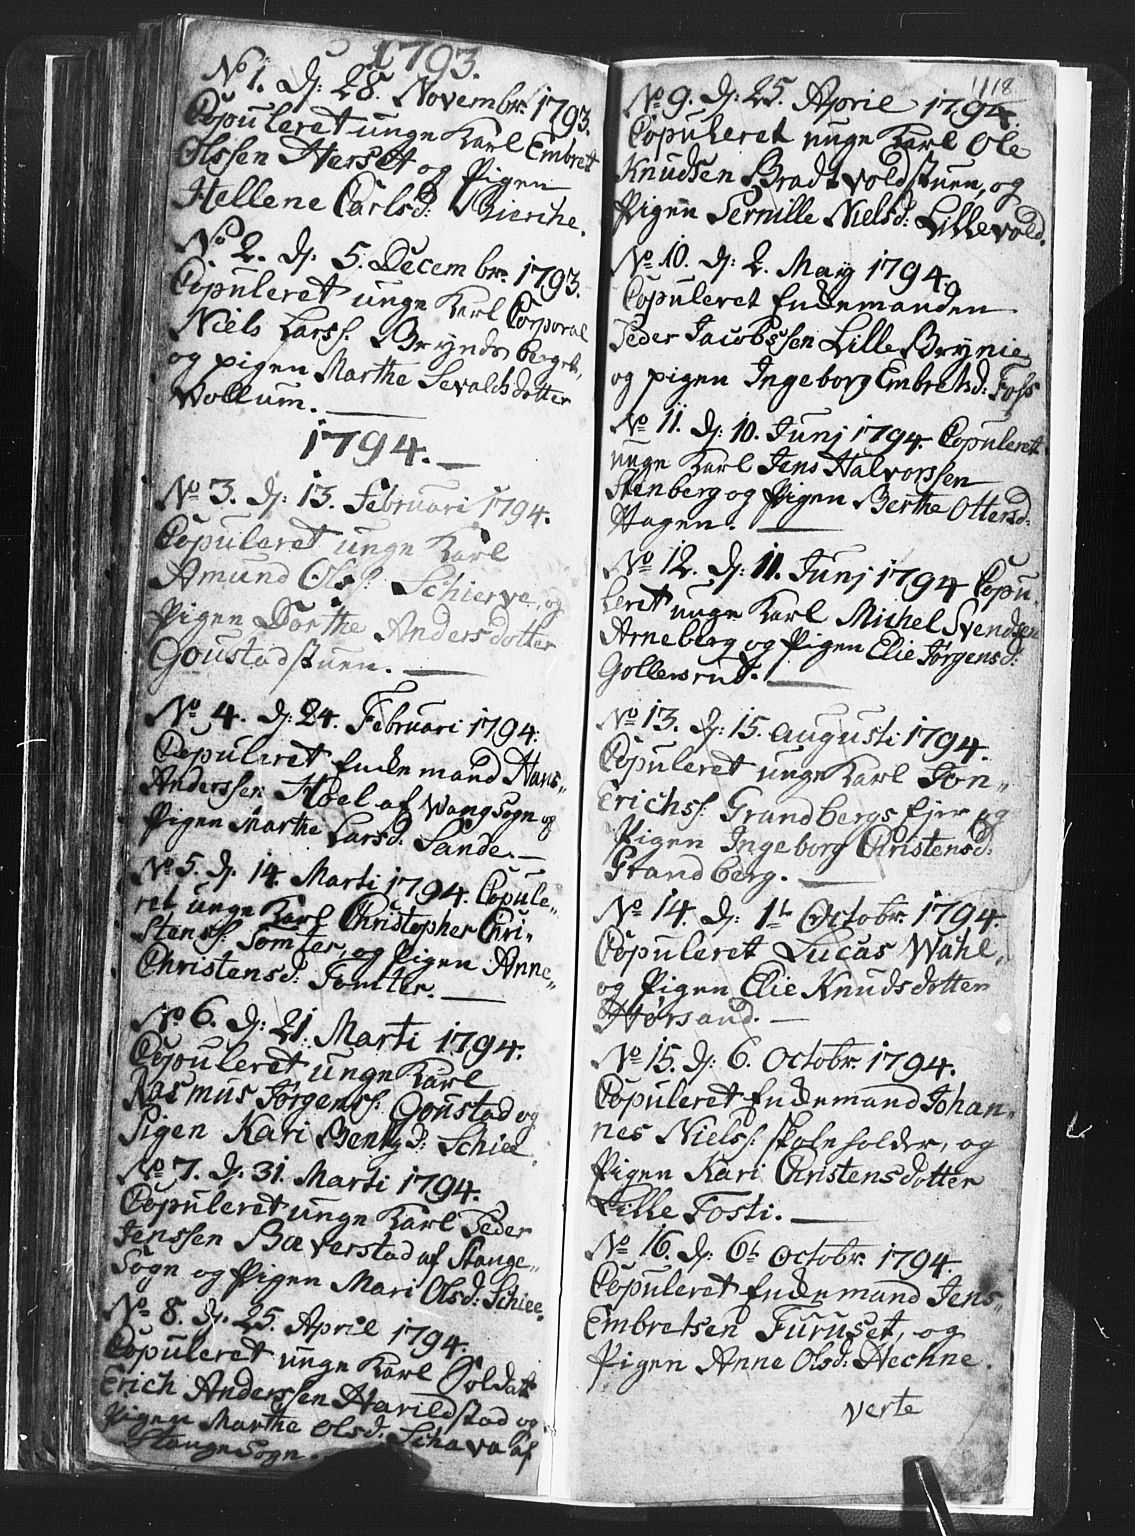 1793.
No 1. D: 28. Novembr. 1793.
Copuleret unge Karl Embret
Olssen Herset og Pigen
Hellene Carlsd: Bierche.
No 2. D: 5. Decembr. 1793.
Copuleret unge Karl Corporal
Niels Larss: Bryndsberget,
og pigen Marthe Sevaldsdotter
Wollum.
1794.
No 3. D: 13. Februari 1794.
Copuleret unge Karl
Amund Olss: Schierve, og
Pigen Dorthe Andersdotter
Goustadstuen.
No 4. D: 24. Februari 1794.
Copuleret Enkemand Hans
Anderssen Hoel af Wang sogn og
Pigen Marthe Larsd: Sande.
No 5. D: 14. Marti 1794. Copule„
ret unge Karl Christopher Chri„
stenss: Tomter, og Pigen Anne
Christensd: Tomter.
No 6. D: 21. Marti 1794.
Copuleret unge Karl
Rasmus Jørgenss: Goustad og
Pigen Kari Bentsd: Schiee.
No 7. D: 31. Marti 1794.
Copuleret unge Karl Peder
Jenssen Bæverstad af Stange„
Sogn og Pigen Mari Olsd: Schiee.
No 8. D: 25. April 1794.
Copuleret unge Karl Soldat
Erich Anderssen Harildstad og
Pigen Marthe Olsd: Schava af
Stange Sogn.
1118
No 9. D: 25. April 1794.
Copuleret unge Karl Ole
Knudsen Bradtvoldstuen, og
Pigen Pernille Nielsd: Lillevold.
No 10. D: 2. May 1794.
Copuleret Enkemanden
Peder Jacobssen Lille Brynie
og pigen Ingeborg Embretsd: Foss
No 11. D: 10. Junj 1794. Copuleret
unge Karl Jens Halvorssen
Stenberg og Pigen Berthe Ottersd:
Hagen.
No 12. D: 11. Junj 1794 Copu„
leret unge Karl Michel Svendsen
Arneberg og Pigen Elie Jørgensd:
Gollersrut.
No 13. D: 15. Augusti 1794.
Copuleret unge Karl Jon„
Erichss: Grandbergs Ejer og
Pigen Ingeborg Christensd:
Grandberg.
No 14. D: 1t Octobr. 1794.
Copuleret Lucas Wahl,
og Pigen Elie Knudsdotter
Horsand.
No 15. D: 6. Octobr. 1794.
Copuleret Enkemand Johan„
nes Nielss: Skoleholder, og
Pigen Kari Christensdotter
Lille Fosti.
No 16. D: 6t Octobr. 1794
Copuleret Enkemand Jens
Embretsen Furuset, og
Pigen Anne Olsd: Hechne.
verte